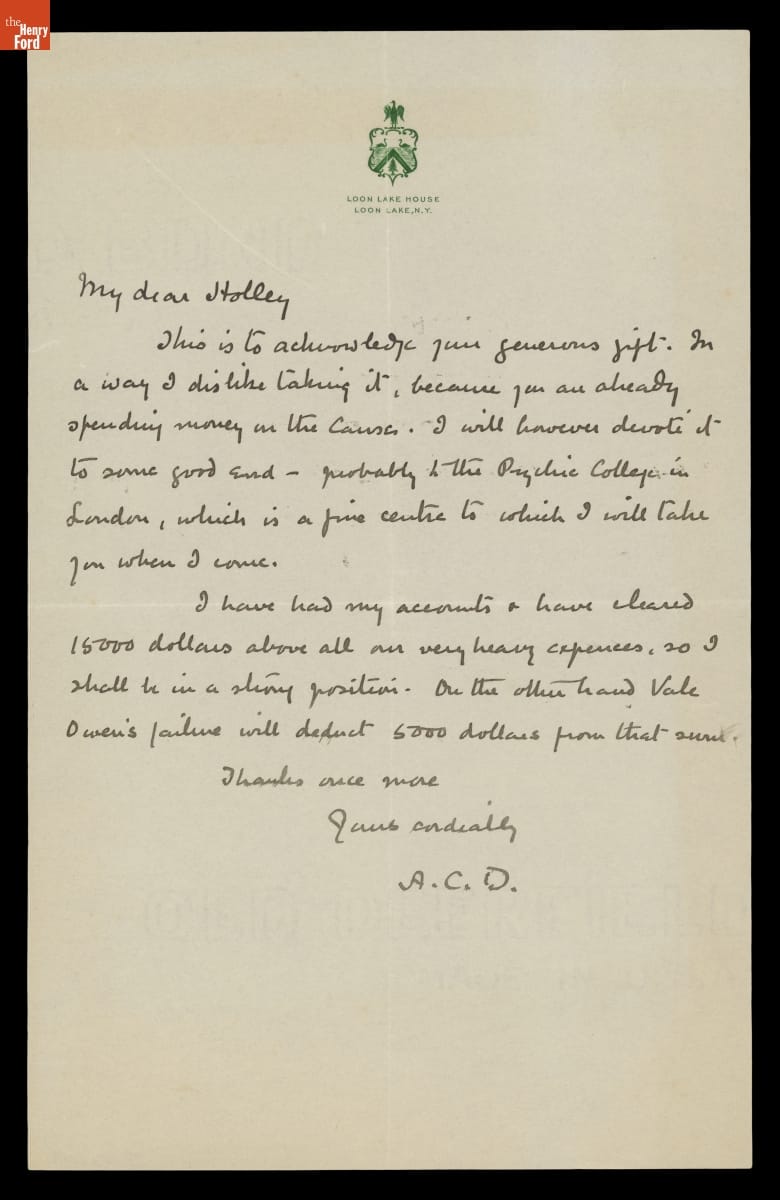 the
Henry
Ford
LOON LAKE HOUSE
LOON LAKE, N.Y.
My dear Holley
This is to acknowledge your generous gift. In
a way I dislike taking it, because you are already
spending money on the Cause. I will however devote it
to some good end – probably to the Psychic College in
London, which is a fine centre to which I will take
you when I come.
I have had my accounts & have cleared
15000 dollars above all our very heavy expences, so I
shall be in a strong position. On the other hand Vale
Owen's failure will deduct 5000 dollars from that sum.
Thanks once more
Yours cordially
A. C. D.